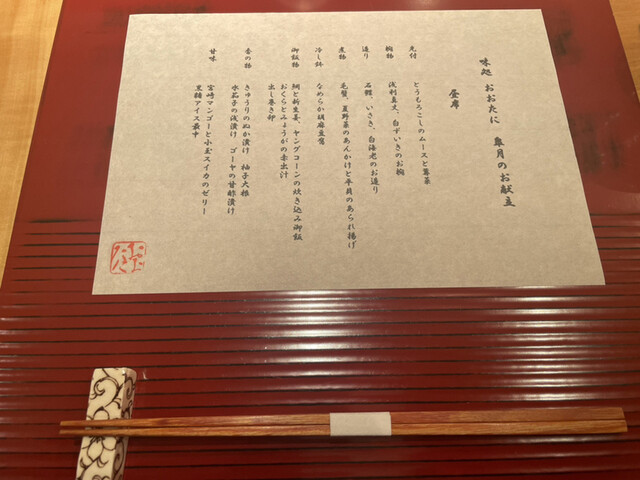 味処 おおたに 皐月のお献立
昼席
先付 とうもろこしのムースと蓴菜
椀物 浅利真丈、白ずいきのお椀
造り 石鯛、いさき、白海老のお造り
煮物 毛蟹、夏野菜のあんかけと平貝のあられ揚げ
冷し鉢 なめらか胡麻豆腐
御飯物 鯛と新生姜、ヤングコーンの炊き込み御飯
おくらとみょうがの赤出汁
出し巻き卵
香の物 きゅうりのぬか漬け 柚子大根
水茄子の浅漬け ゴーヤの甘酢漬け
甘味 宮崎マンゴーと小玉スイカのゼリー
黒糖アイス最中